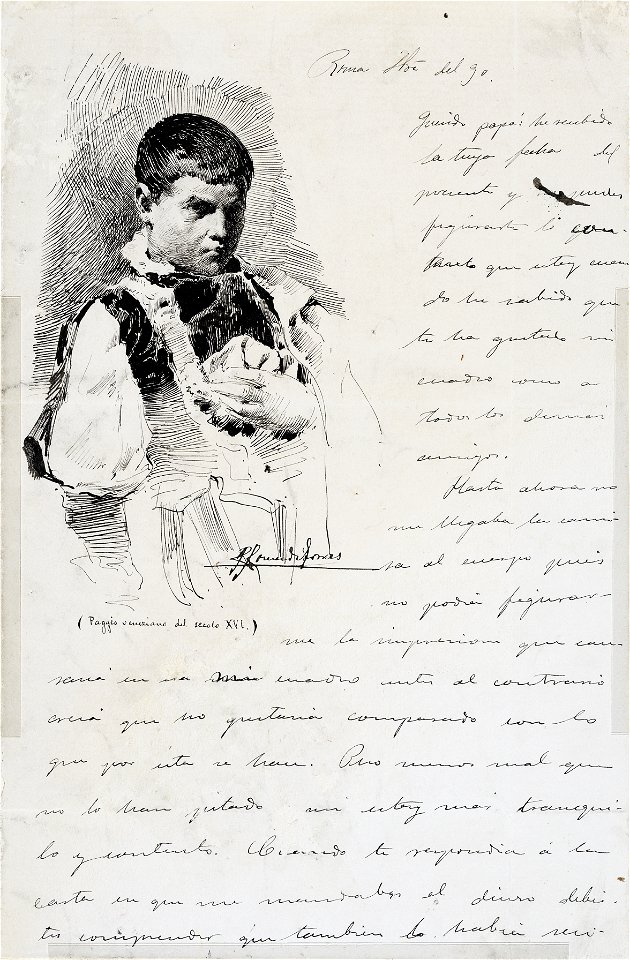 Roma del 90.
Querido papá: he recibido
la tuya fecha del
presente y puedes
figurarte lo con-
tento que estoy cuan
do he sabido que
te ha gustado mi
cuadro como a
todos los demás
amigos.
Hasta ahora no
me llegaba la cami
sa al cuerpo pues
no podia figurar-
me la impresion que cau-
saria en mi cuadro antes al contrario
creia que no gustaria comparado con lo
que por ésta se hace. Pero menos mal que
no lo han pitado asi estoy más tranqui-
lo y contento. Cuando te respondia á la
carta en que me mandabas el dinero debis-
tes comprender que tambien lo habia reci-
(Paggio veneziano del secolo XVI.)